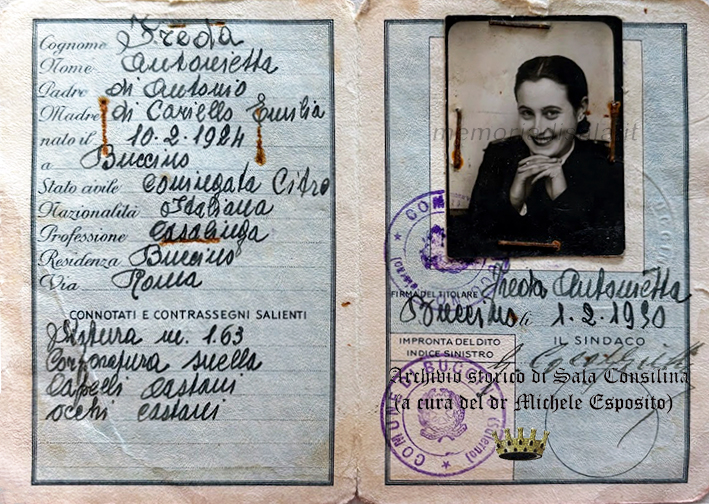 Cognome Freda
Nome Antonietta
Padre di Antonio
Madre di Cariello Emilia
nato il 10.2.1924
a Buccino
Stato civile Coniugata Citro
Nazionalità Italiana
Professione Casalinga
Residenza Buccino
Via Roma
CONNOTATI E CONTRASSEGNI SALIENTI
Statura m. 1.63
Corporatura snella
Capelli castani
occhi castani
FIRMA DEL TITOLARE Freda Antonietta
Buccino li 1.2.1950
IMPRONTA DEL DITO
INDICE SINISTRO
IL SINDACO
Archivio storico di Sala Consilina
(a cura del dr Michele Esposito)
COMUNE DI BUCCINO
(Salerno)